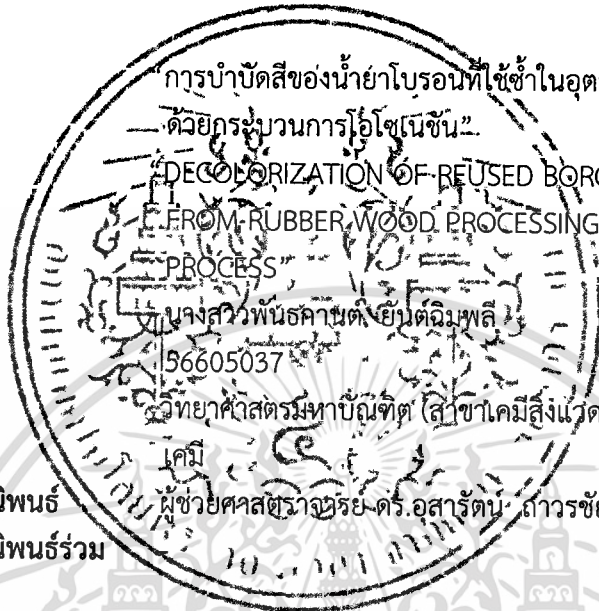 "การบำบัดสีของน้ำยาโบรอนที่ใช้ซ้ำในอุต
ด้วยกระบวนการโอโซเนชัน"
"DECOLORIZATION OF REUSED BORO
FROM RUBBER WOOD PROCESSING
PROCESS"
นางสาวพันธกานต์ ยันต์ฉิมพลี
56605037
วิทยาศาสตรมหาบัณฑิต (สาขาเคมีสิ่งแวด
เคมี
นิพนธ์ ผู้ช่วยศาสตราจารย์ ดร.อุสารัตน์ ถาวรชัย
นิพนธ์ร่วม